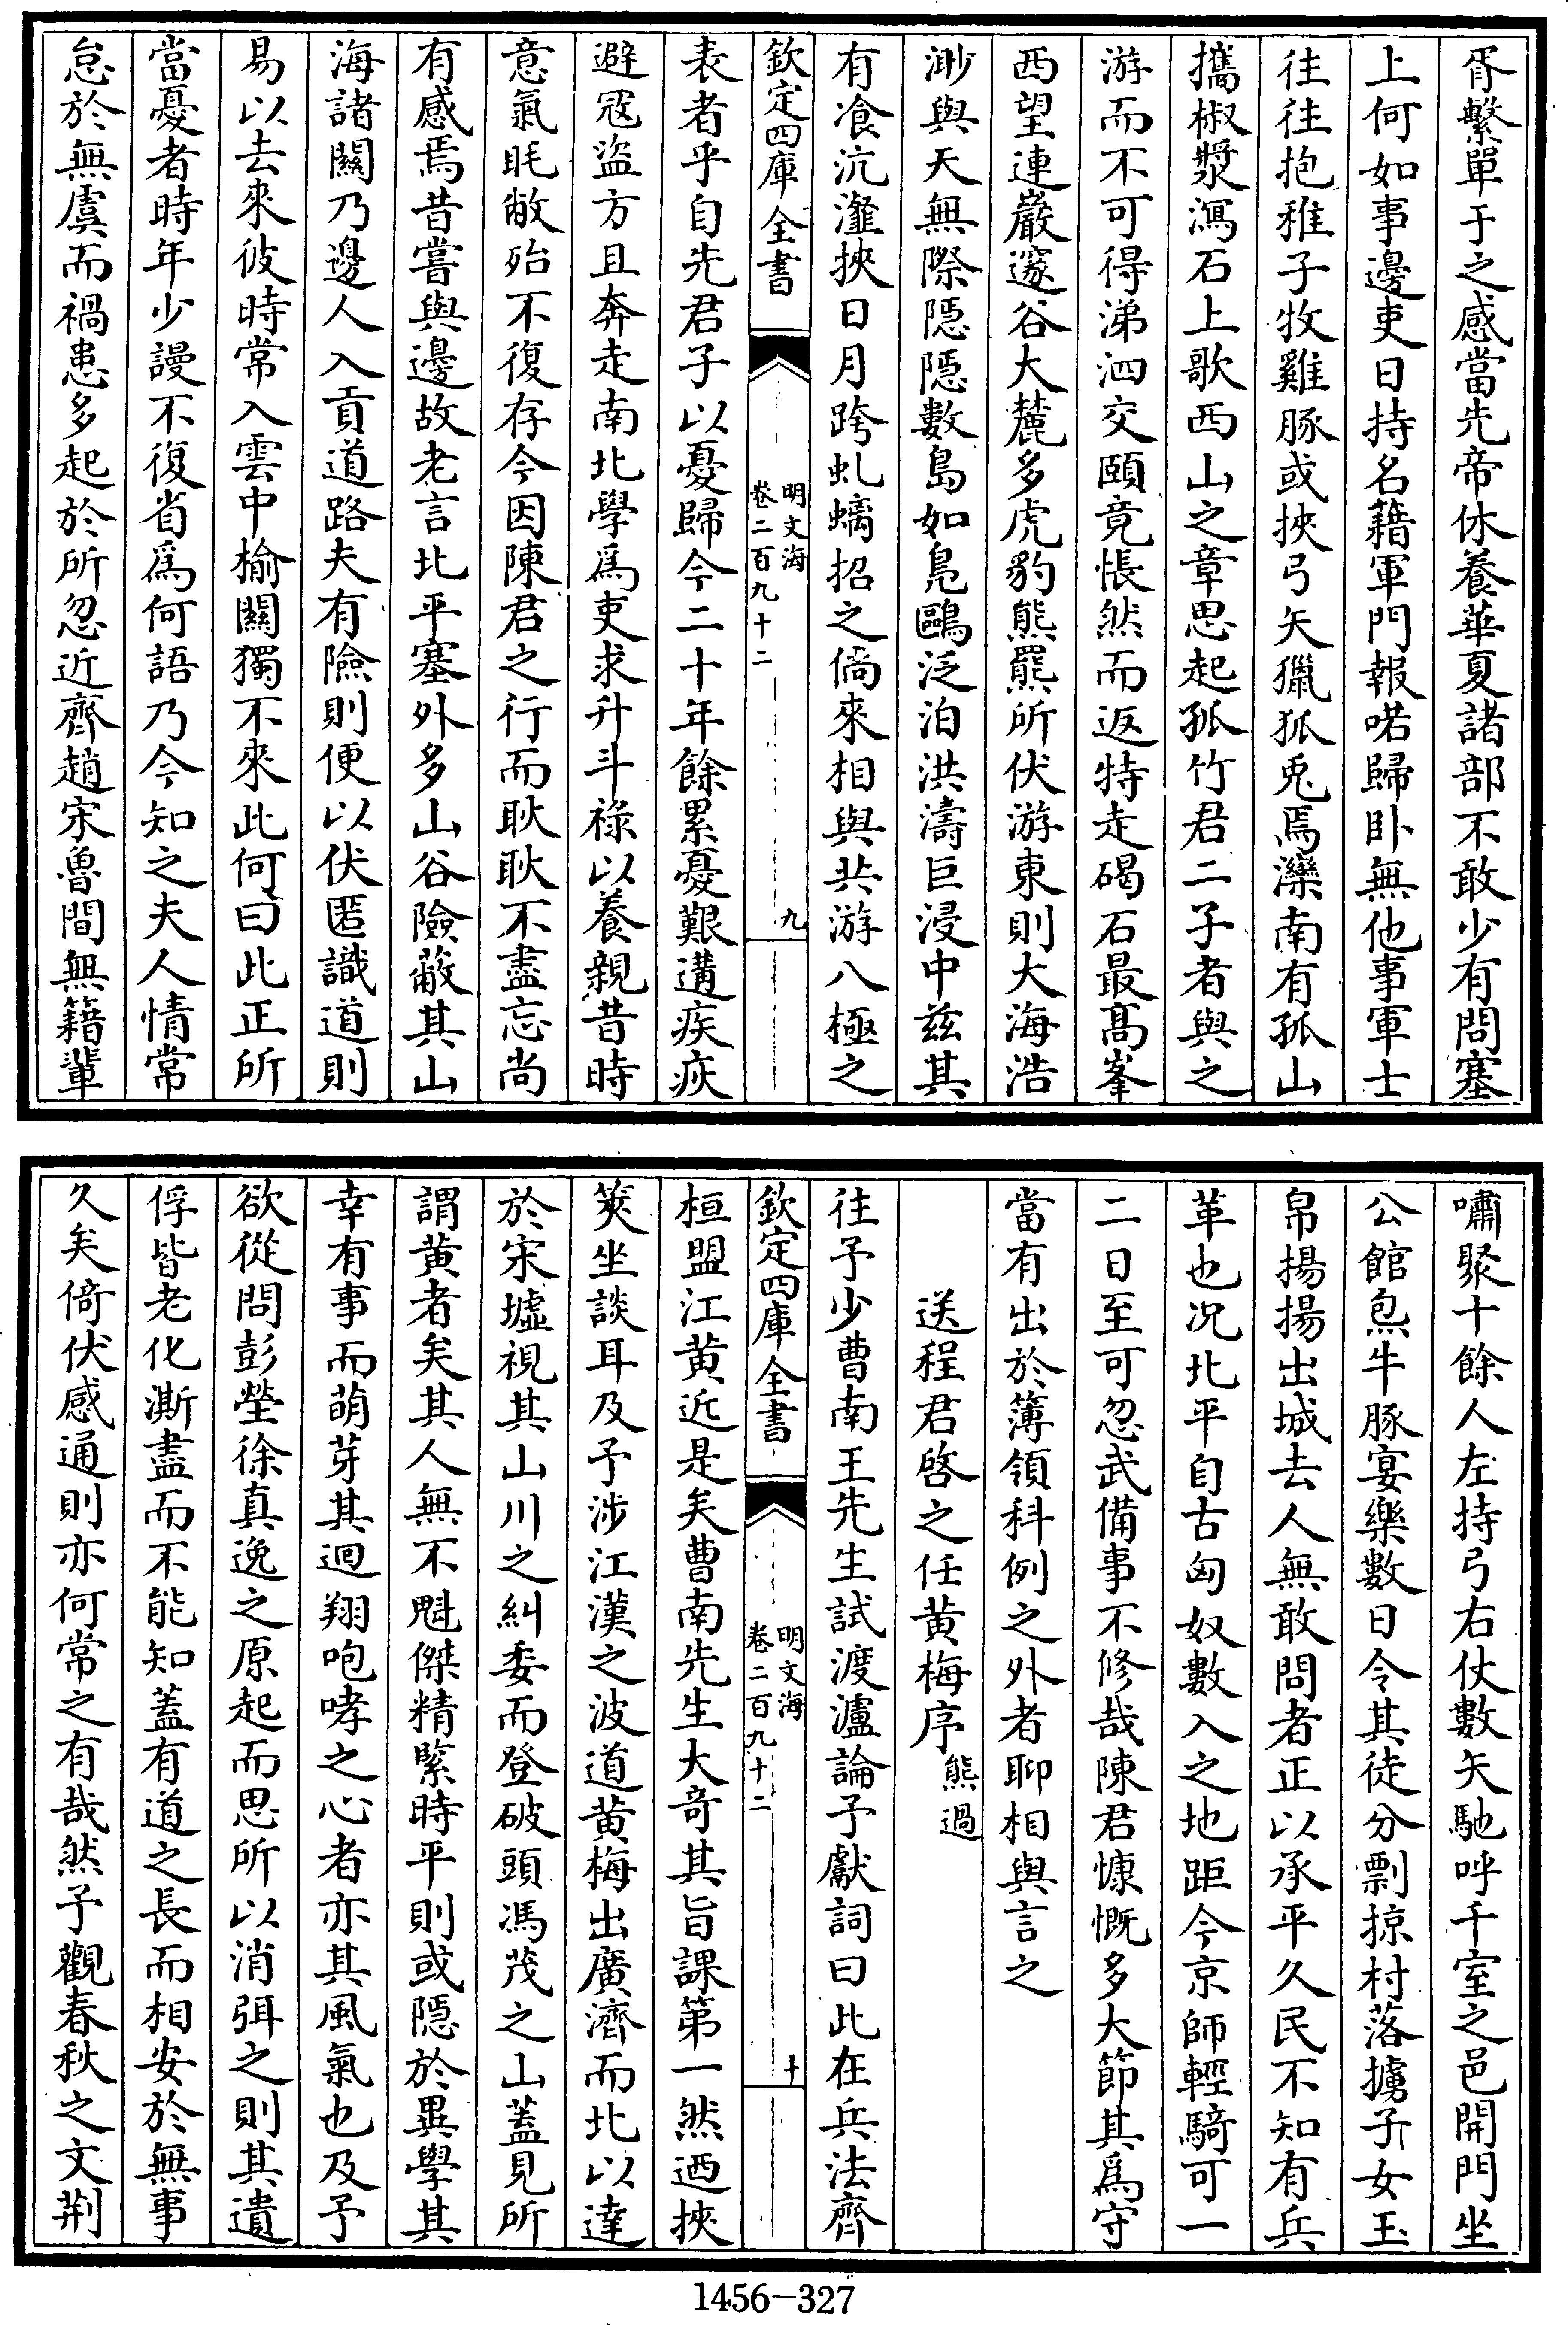 胥繫單于之感當先帝休養華夏諸部不敢少有問塞
上何如事邊吏日持名籍軍門報喏歸卧無他事軍士
往往抱稚子牧雞豚或挾弓矢獵狐兎焉灤南有孤山
攜椒漿瀉石上歌西山之章思起孤竹君二子者與之
游而不可得涕泗交頤竟悵然而返特走碣石最髙峯
西望連巖邃谷大麓多虎豹熊羆所伏游東則大海浩
渺與天無際隠隠數島如鳬鷗泛泊洪濤巨浸中兹其
有飡沆瀣挾日月跨虬螭招之倘來相與共游八極之
欽定四庫全書
明文海
卷二百九十二
九
表者乎自先君子以憂歸今二十年餘累憂艱遘疾疢
避冦盜方且奔走南北學爲吏求升斗祿以養親昔時
意氣眊敝殆不復存今因陳君之行而耿耿不盡忘尚
有感焉昔嘗與邊故老言北平塞外多山谷險蔽其山
海諸關乃邊人入貢道路夫有險則便以伏匿識道則
易以去來彼時常入雲中榆關獨不來此何曰此正所
當憂者時年少謾不復省爲何語乃今知之夫人情常
怠於無虞而禍患多起於所忽近齊趙宋魯間無籍輩
嘯聚十餘人左持弓右仗數矢馳呼千室之邑開門坐
公館炰牛豚宴樂數日令其徒分剽掠村落擄子女玉
帛揚揚出城去人無敢問者正以承平久民不知有兵
革也况北平自古匈奴數入之地距今京師輕騎可一
二日至可忽武備事不修哉陳君慷慨多大節其爲守
當有出於簿領科例之外者聊相與言之
送程君啓之任黄梅序 熊過
往予少曹南王先生試渡瀘論予獻詞曰此在兵法齊
欽定四庫全書
明文海
卷二百九十二
十
桓盟江黄近是矣曹南先生大奇其旨課第一然迺挾
筴坐談耳及予涉江漢之波道黄梅出廣濟而北以達
於宋墟視其山川之糾委而登破頭馮茂之山蓋見所
謂黄者矣其人無不魁傑精緊時平則或隠於異學其
幸有事而萌芽其迴翔咆哮之心者亦其風氣也及予
欲從問彭塋徐真逸之原起而思所以消弭之則其遺
俘皆老化澌盡而不能知蓋有道之長而相安於無事
久矣倚伏感通則亦何常之有哉然予觀春秋之文荆
1456-327